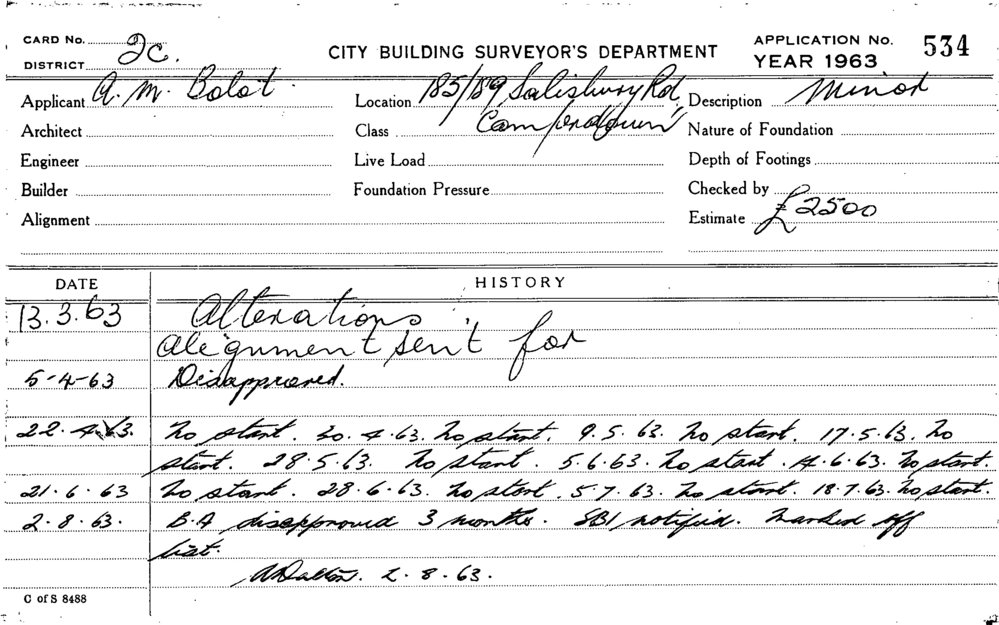 CARD No. 2c. CITY BUILDING SURVEYOR'S DEPARTMENT APPLICATION No. 534
DISTRICT YEAR 1963
Applicant A. M. Bolot. Location 185/189 Salisbury Rd Description Minor
Architect Class Camperdown Nature of Foundation
Engineer Live Load Depth of Footings
Builder Foundation Pressure Checked by
Alignment Estimate £2500
DATE HISTORY
13.3.63 Alterations
Alignment sent for
5-4-63 Disapproved.
22.4.63. No start. 30.4.63. No start. 9.5.63. No start. 17.5.63. No
start. 28.5.63. No start. 5.6.63. No start. 14.6.63. No start.
21.6.63 No start. 28.6.63. No start. 5.7.63. No start. 18.7.63. No start.
2.8.63. B.A disapproved 3 months. SBI notified. Marked off
list.
ADalton. 2.8.63.
C of S 8488